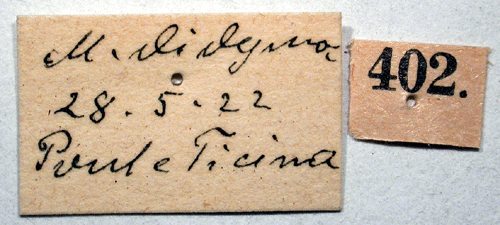 M. didyma
28.5.22
Ponte Ticino
402.